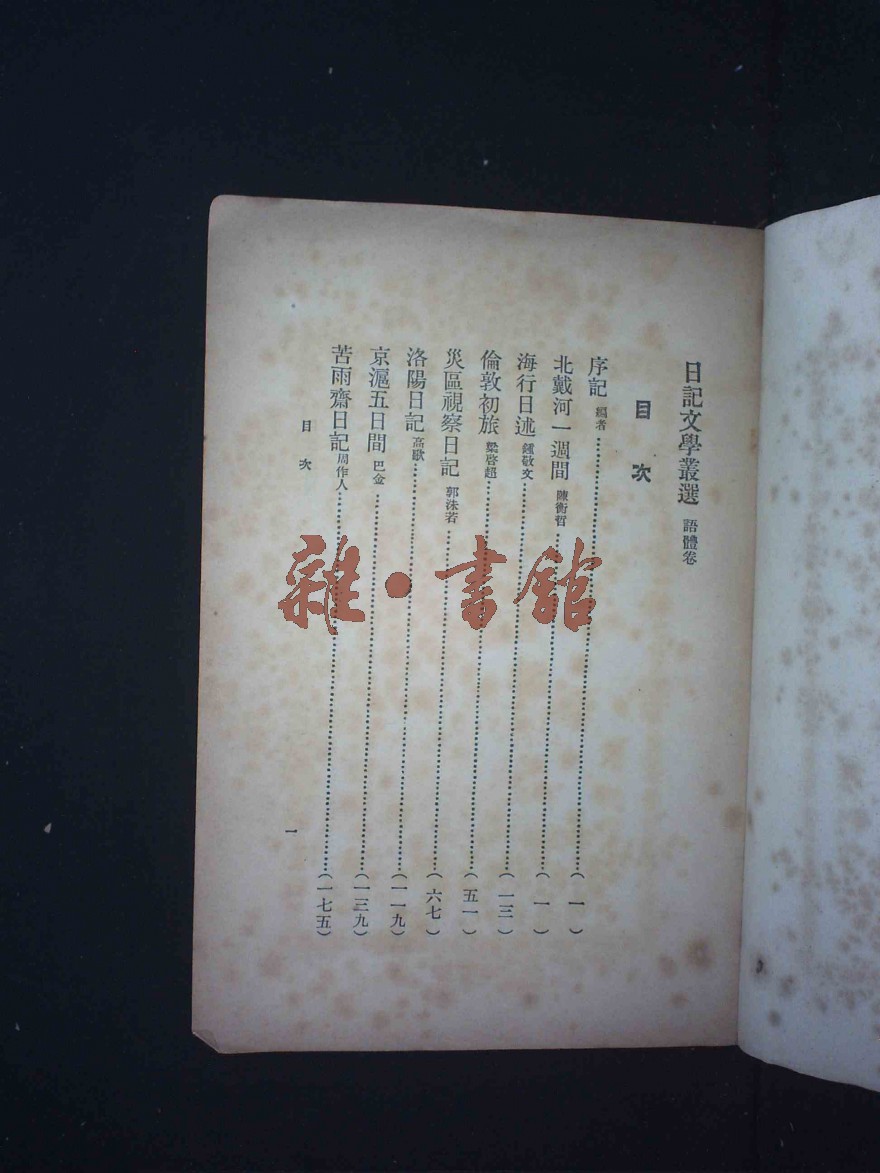 日記文學叢選 語體卷
目次
序記 編者……(一)
北戴河一週間 陳衡哲……(一)
海行日述 鍾敬文……(一三)
倫敦初旅 梁啓超……(五一)
災區視察日記 郭沫若……(六七)
洛陽日記 高歌……(一一九)
京滬五日間 巴金……(一三九)
苦雨齋日記 周作人……(一七五)
目次
一
雜·書館